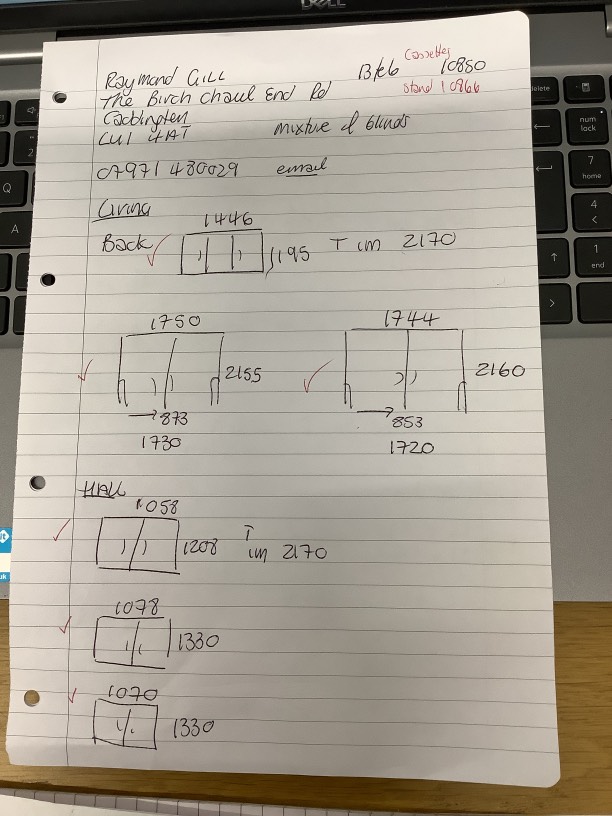 Raymond Gill
Cassettes
B+eb 10850
The Birch Chaul End Rd
Stand 10866
Caddington
LU1 4AT
mixture of blinds
07971 480029 email
Living
1446
Back 1195 T im 2170
1750
1744
2155
2160
873
853
1730
1720
HALL
1058
1208 T im 2170
1078
1330
1070
1330
DELL
delete
num lock
7 home
4
1 end
Q
A
2